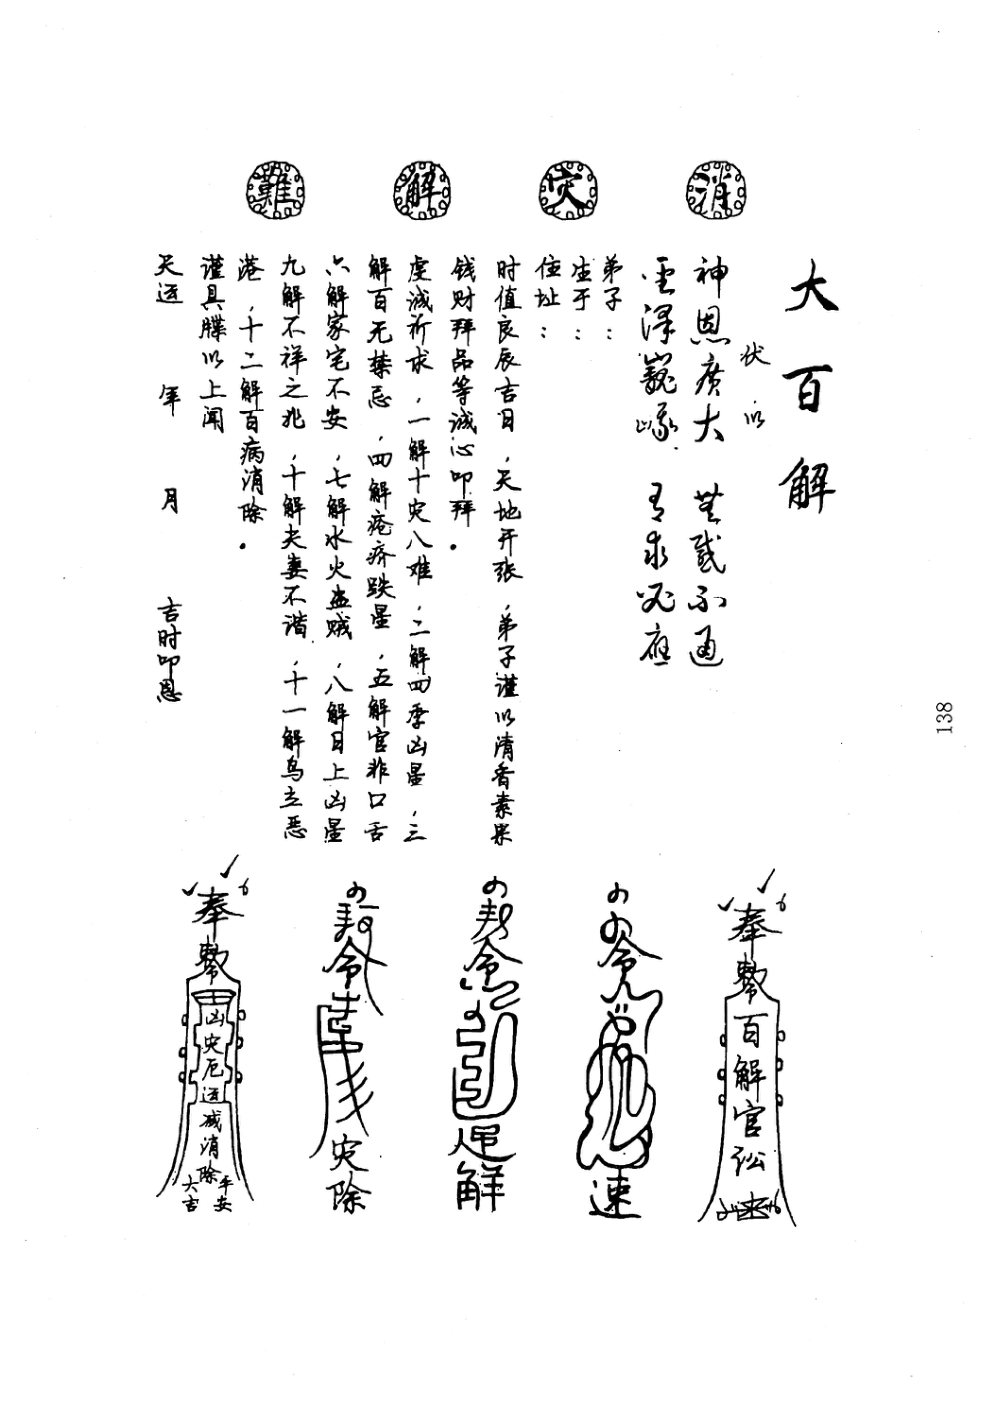 消災解難
大百解
伏以
神恩廣大 無感不通
聖澤巍峨 有求必應
弟子：
生于：
住址：
时值良辰吉日，天地开张，弟子谨以清香素果
钱财拜品等诚心叩拜.
虔诚祈求，一解十灾八难，二解四季凶星，三
解百无禁忌，四解疮疥跌星，五解官非口舌
六解家宅不安，七解水火盗贼，八解日上凶星
九解不祥之兆，十解夫妻不谐，十一解鸟立恶
港，十二解百病消除.
谨具牒以上闻
天运 年 月 吉时叩恩
奉勅百解官讼
令速
令解
令灾除
奉勅凶灾厄运减消除
平安
大吉
138